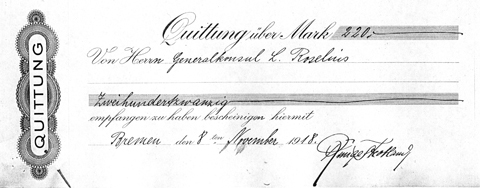 QUITTUNG
Quittung über Mark 220.
Von Herrn Generalkonsul L. Roselius
Zweihundertzwanzig
empfangen zu haben bescheinigen hiermit
Bremen den 8ten November 1918.